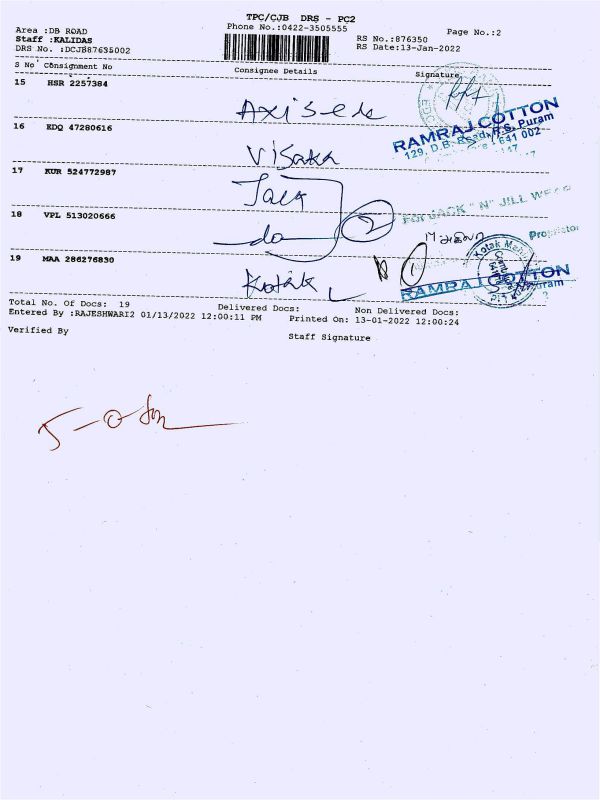 TPC/CJB DRS - PC2
Phone No.:0422-3505555
Page No.:2
Area :DB ROAD
Staff :KALIDAS
DRS No. :DCJB87635002
RS No.:876350
RS Date:13-Jan-2022
S No Consignment No Consignee Details Signature
15 HSR 2257384
RAMRAJ COTTON
129, D.B. Road, R.S. Puram
641 002
16 EDQ 47280616
Visaka
17 KUR 524772987
FOR JACK "N" JILL WEAR
Proprietor
18 VPL 513020666
do
2
19 MAA 286276830
Kotak
1
RAMRAJ COTTON
Total No. Of Docs: 19 Delivered Docs: Non Delivered Docs:
Entered By :RAJESHWARI2 01/13/2022 12:00:11 PM Printed On: 13-01-2022 12:00:24
Verified By Staff Signature